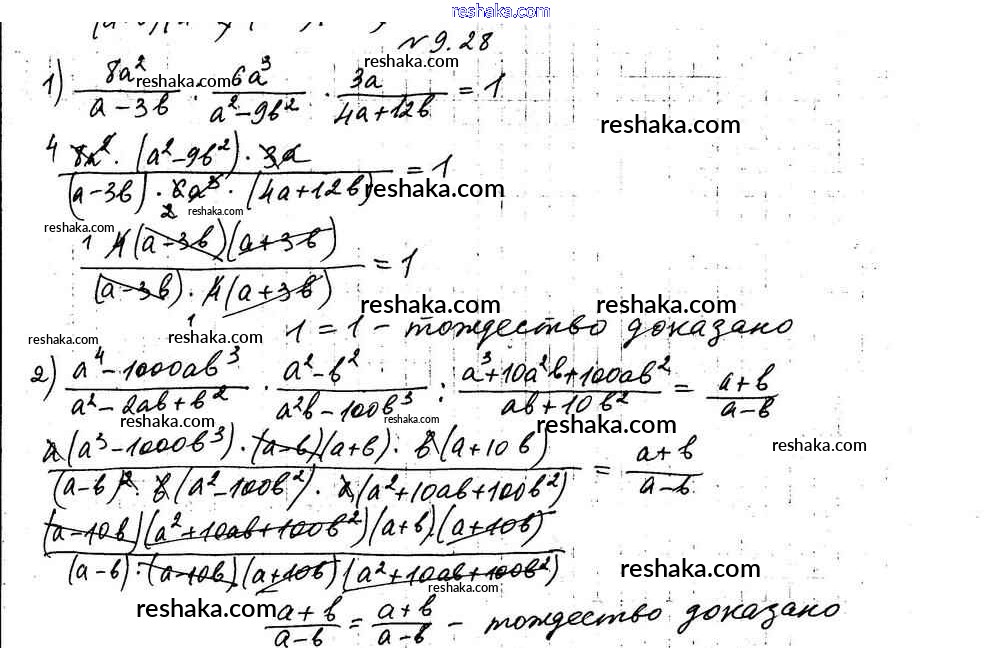 reshaka.com
№ 9.28
1) 8a²/(a-3b) : 6a³/(a²-9b²) · 3a/(4a+12b) = 1
reshaka.com reshaka.com
reshaka.com
4 8a² · (a²-9b²) · 3a / (a-3b) · 6a³ · (4a+12b) = 1
2
reshaka.com reshaka.com
reshaka.com
1 4(a-3b)(a+3b) / (a-3b) · 4(a+3b) = 1
1
reshaka.com reshaka.com
1 = 1 - тождество доказано
reshaka.com
2) (a⁴-1000ab³)/(a²-2ab+b²) · (a²-b²)/(a²b-100b³) : (a³+10a²b+100ab²)/(ab+10b²) = (a+b)/(a-b)
reshaka.com reshaka.com reshaka.com
a(a³-1000b³) · (a-b)(a+b) · b(a+10b) / (a-b)² · b(a²-100b²) · a(a²+10ab+100b²) = (a+b)/(a-b)
reshaka.com
(a-10b)(a²+10ab+100b²)(a+b) · (a+10b) / (a-b) · (a-10b)(a+10b)(a²+10ab+100b²)
reshaka.com
reshaka.com
reshaka.com
(a+b)/(a-b) = (a+b)/(a-b) - тождество доказано